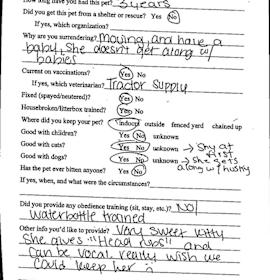 How long have you had this pet? 3 years
Did you get this pet from a shelter or rescue? Yes No
If yes, which organization?
Why are you surrendering? Moving and have a
baby. She doesn't get along w/
babies
Current on vaccinations? Yes No
If yes, which veterinarian? Tractor Supply
Fixed (spayed/neutered)? Yes No
Housebroken/litterbox trained? Yes No
Where did you keep your pet? indoor outside fenced yard chained up
Good with children? Yes No unknown
Good with cats? Yes No unknown → Shy at first
Good with dogs? Yes No unknown → She gets along w/ husky
Has the pet ever bitten anyone? Yes No
If yes, when, and what were the circumstances?
Did you provide any obedience training (sit, stay, etc.)? NO
waterbottle trained
Other info you'd like to provide? Very sweet kitty
She gives "Head
and
can be vocal really wish we
could keep her :(